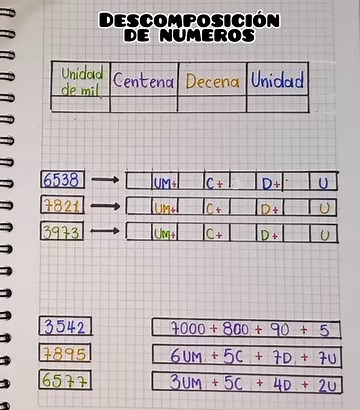 DESCOMPOSICIÓN
DE NUMEROS
Unidad de mil Centena Decena Unidad
6538 → UM+ C+ D+ U
7821 → UM+ C+ D+ U
3973 → UM+ C+ D+ U
3542 7000 + 800 + 90 + 5
7895 6UM + 5C + 7D + 7U
6577 3UM + 5C + 4D + 2U